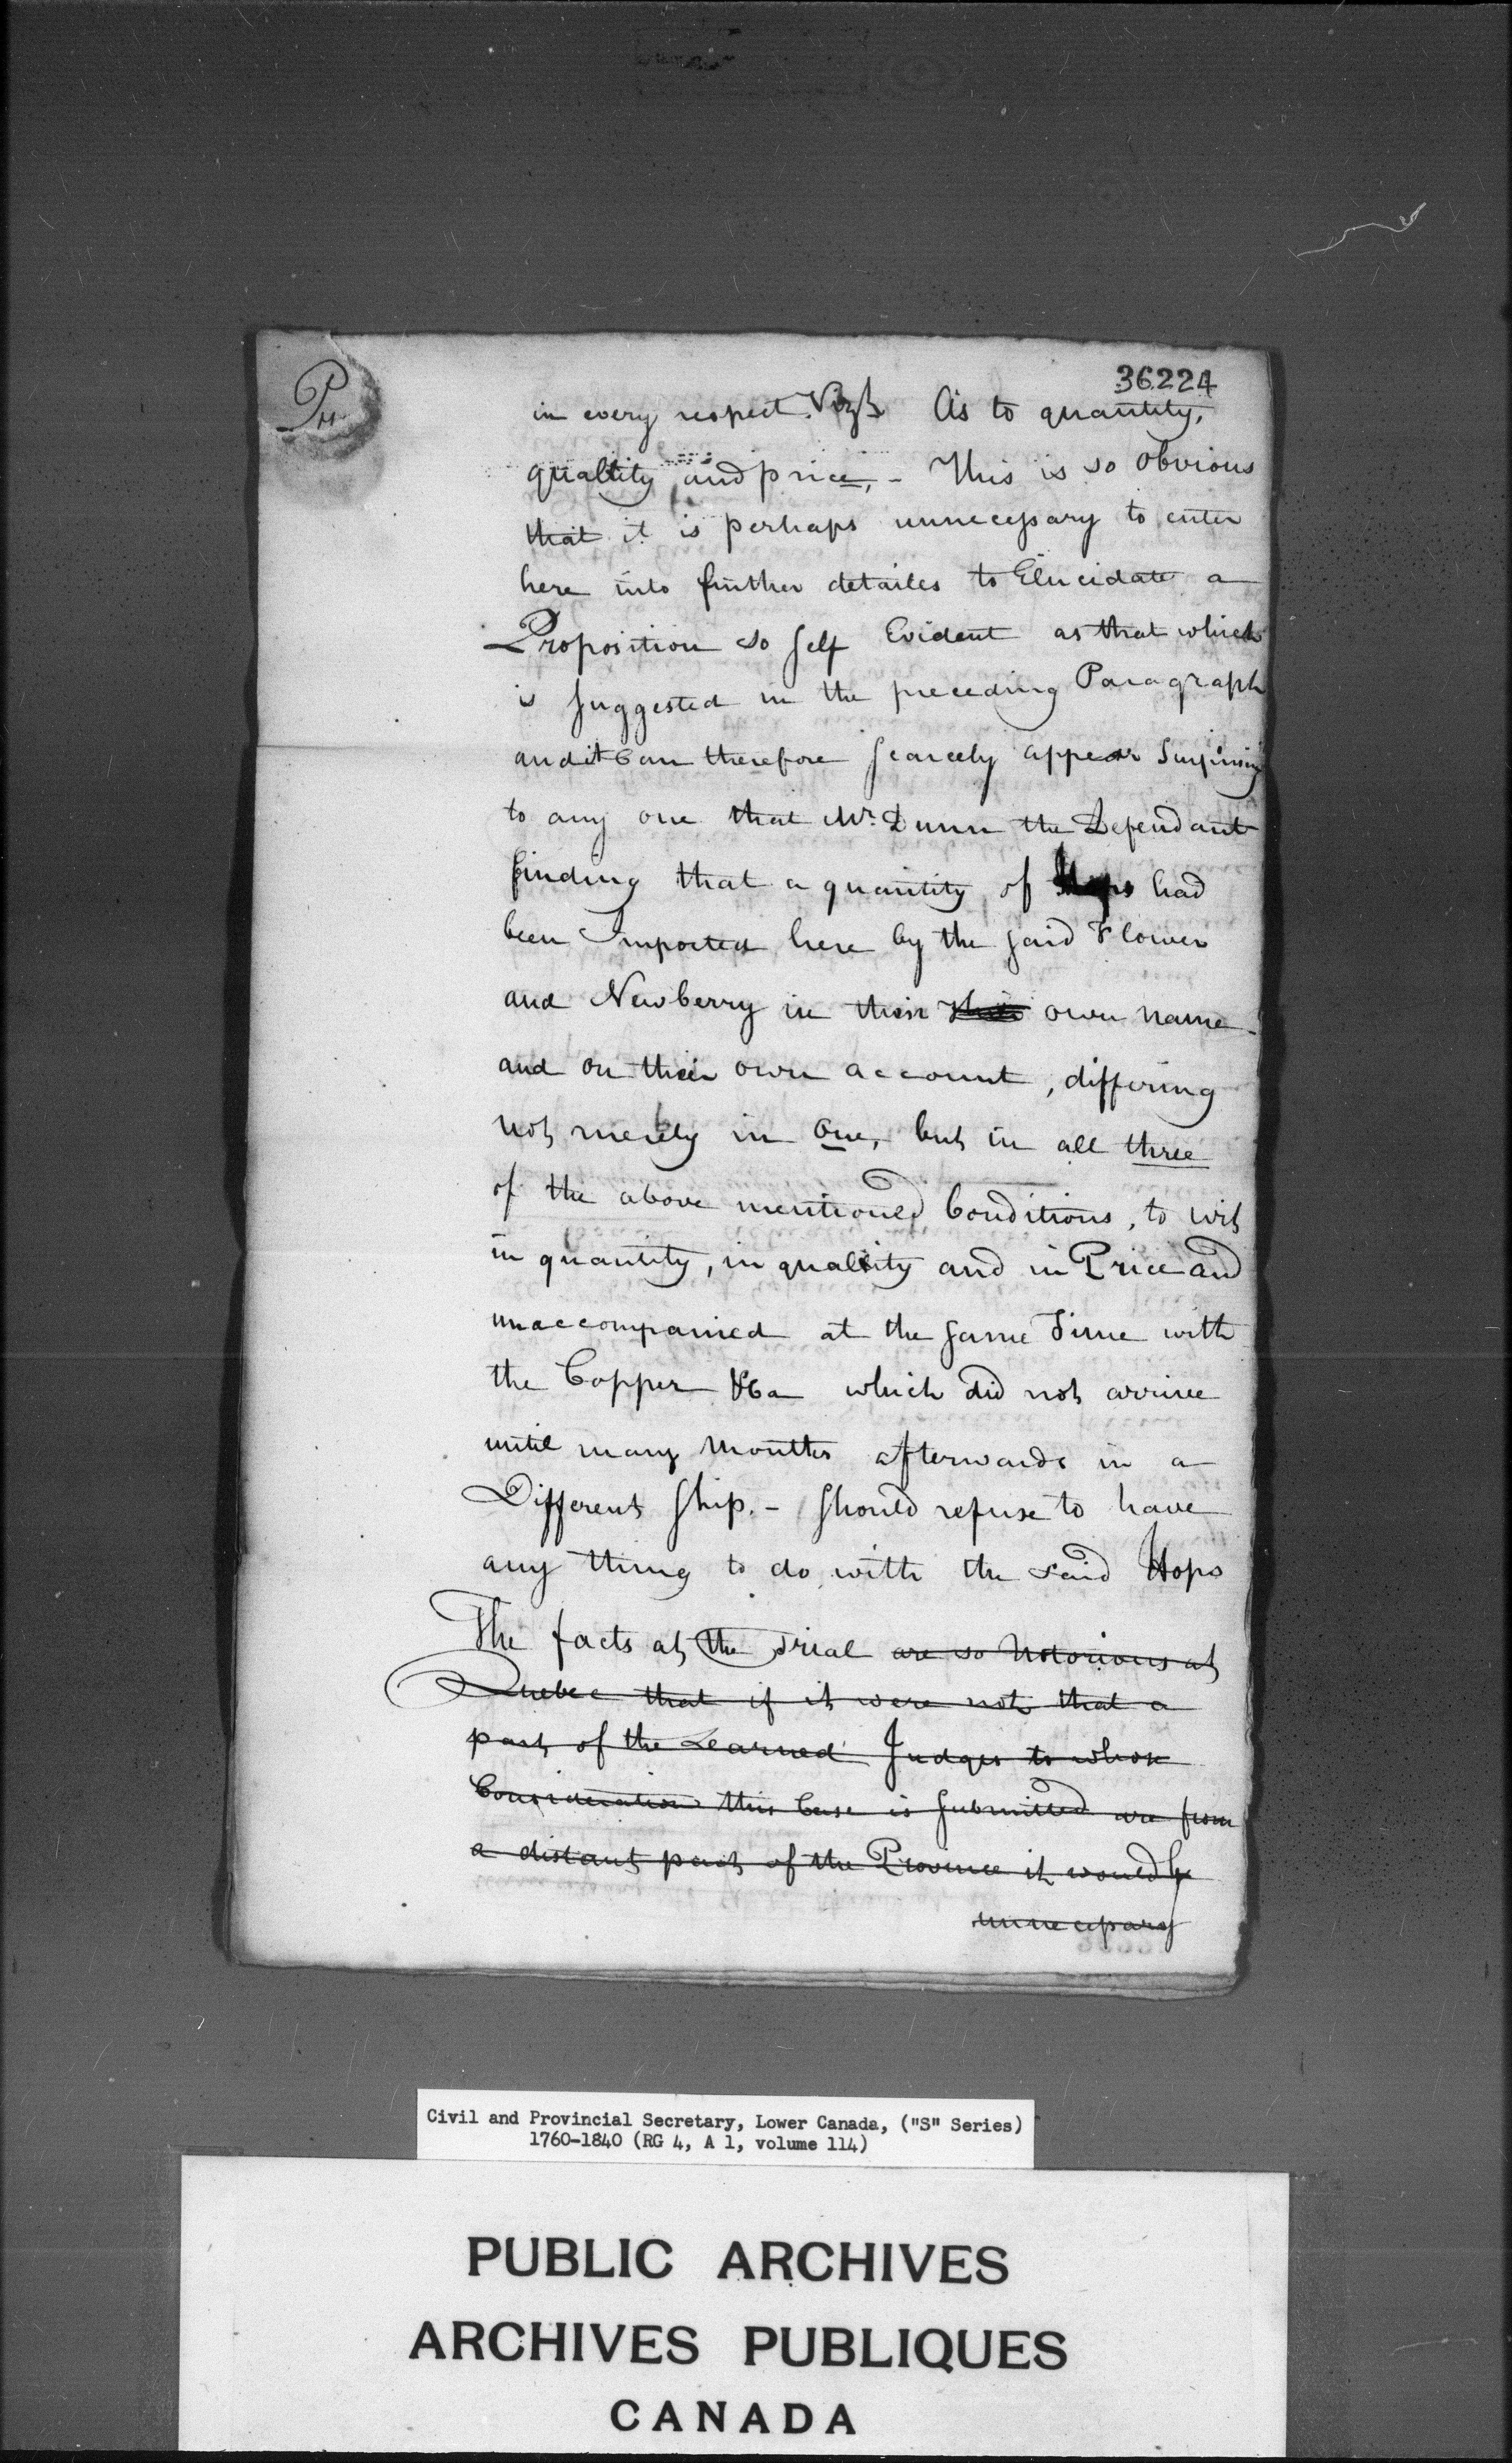 36224
in every respect. Vizt As to quantity,
quality and price, - This is so obvious
that it is perhaps unnecessary to enter
here into further detailes to Elucidate a
Proposition so self Evident as that which
is suggested in the preceding Paragraph
and it Can therefore scarcely appear Surprising
to any one that Mr. Dunn the Defendant
finding that a quantity of Hops had
been Imported here by the said Flower
and Newberry in their own name
and on their own account, differing
not merely in One, but in all three
of the above mentioned Conditions, to wit
in quantity, in quality and in Price and
unaccompanied at the same Time with
the Copper &Ca which did not arrive
until many Months afterwards in a
Different Ship. - Should refuse to have
any thing to do with the said Hops
The facts at the Trial are so Notorious at
Quebec that if it were not that a
part of the Learned Judges to whose
Consideration this Case is submitted are from
a distant part of the Province it would be
unnecessary
Civil and Provincial Secretary, Lower Canada, ("S" Series)
1760-1840 (RG 4, A 1, volume 114)
PUBLIC ARCHIVES
ARCHIVES PUBLIQUES
CANADA